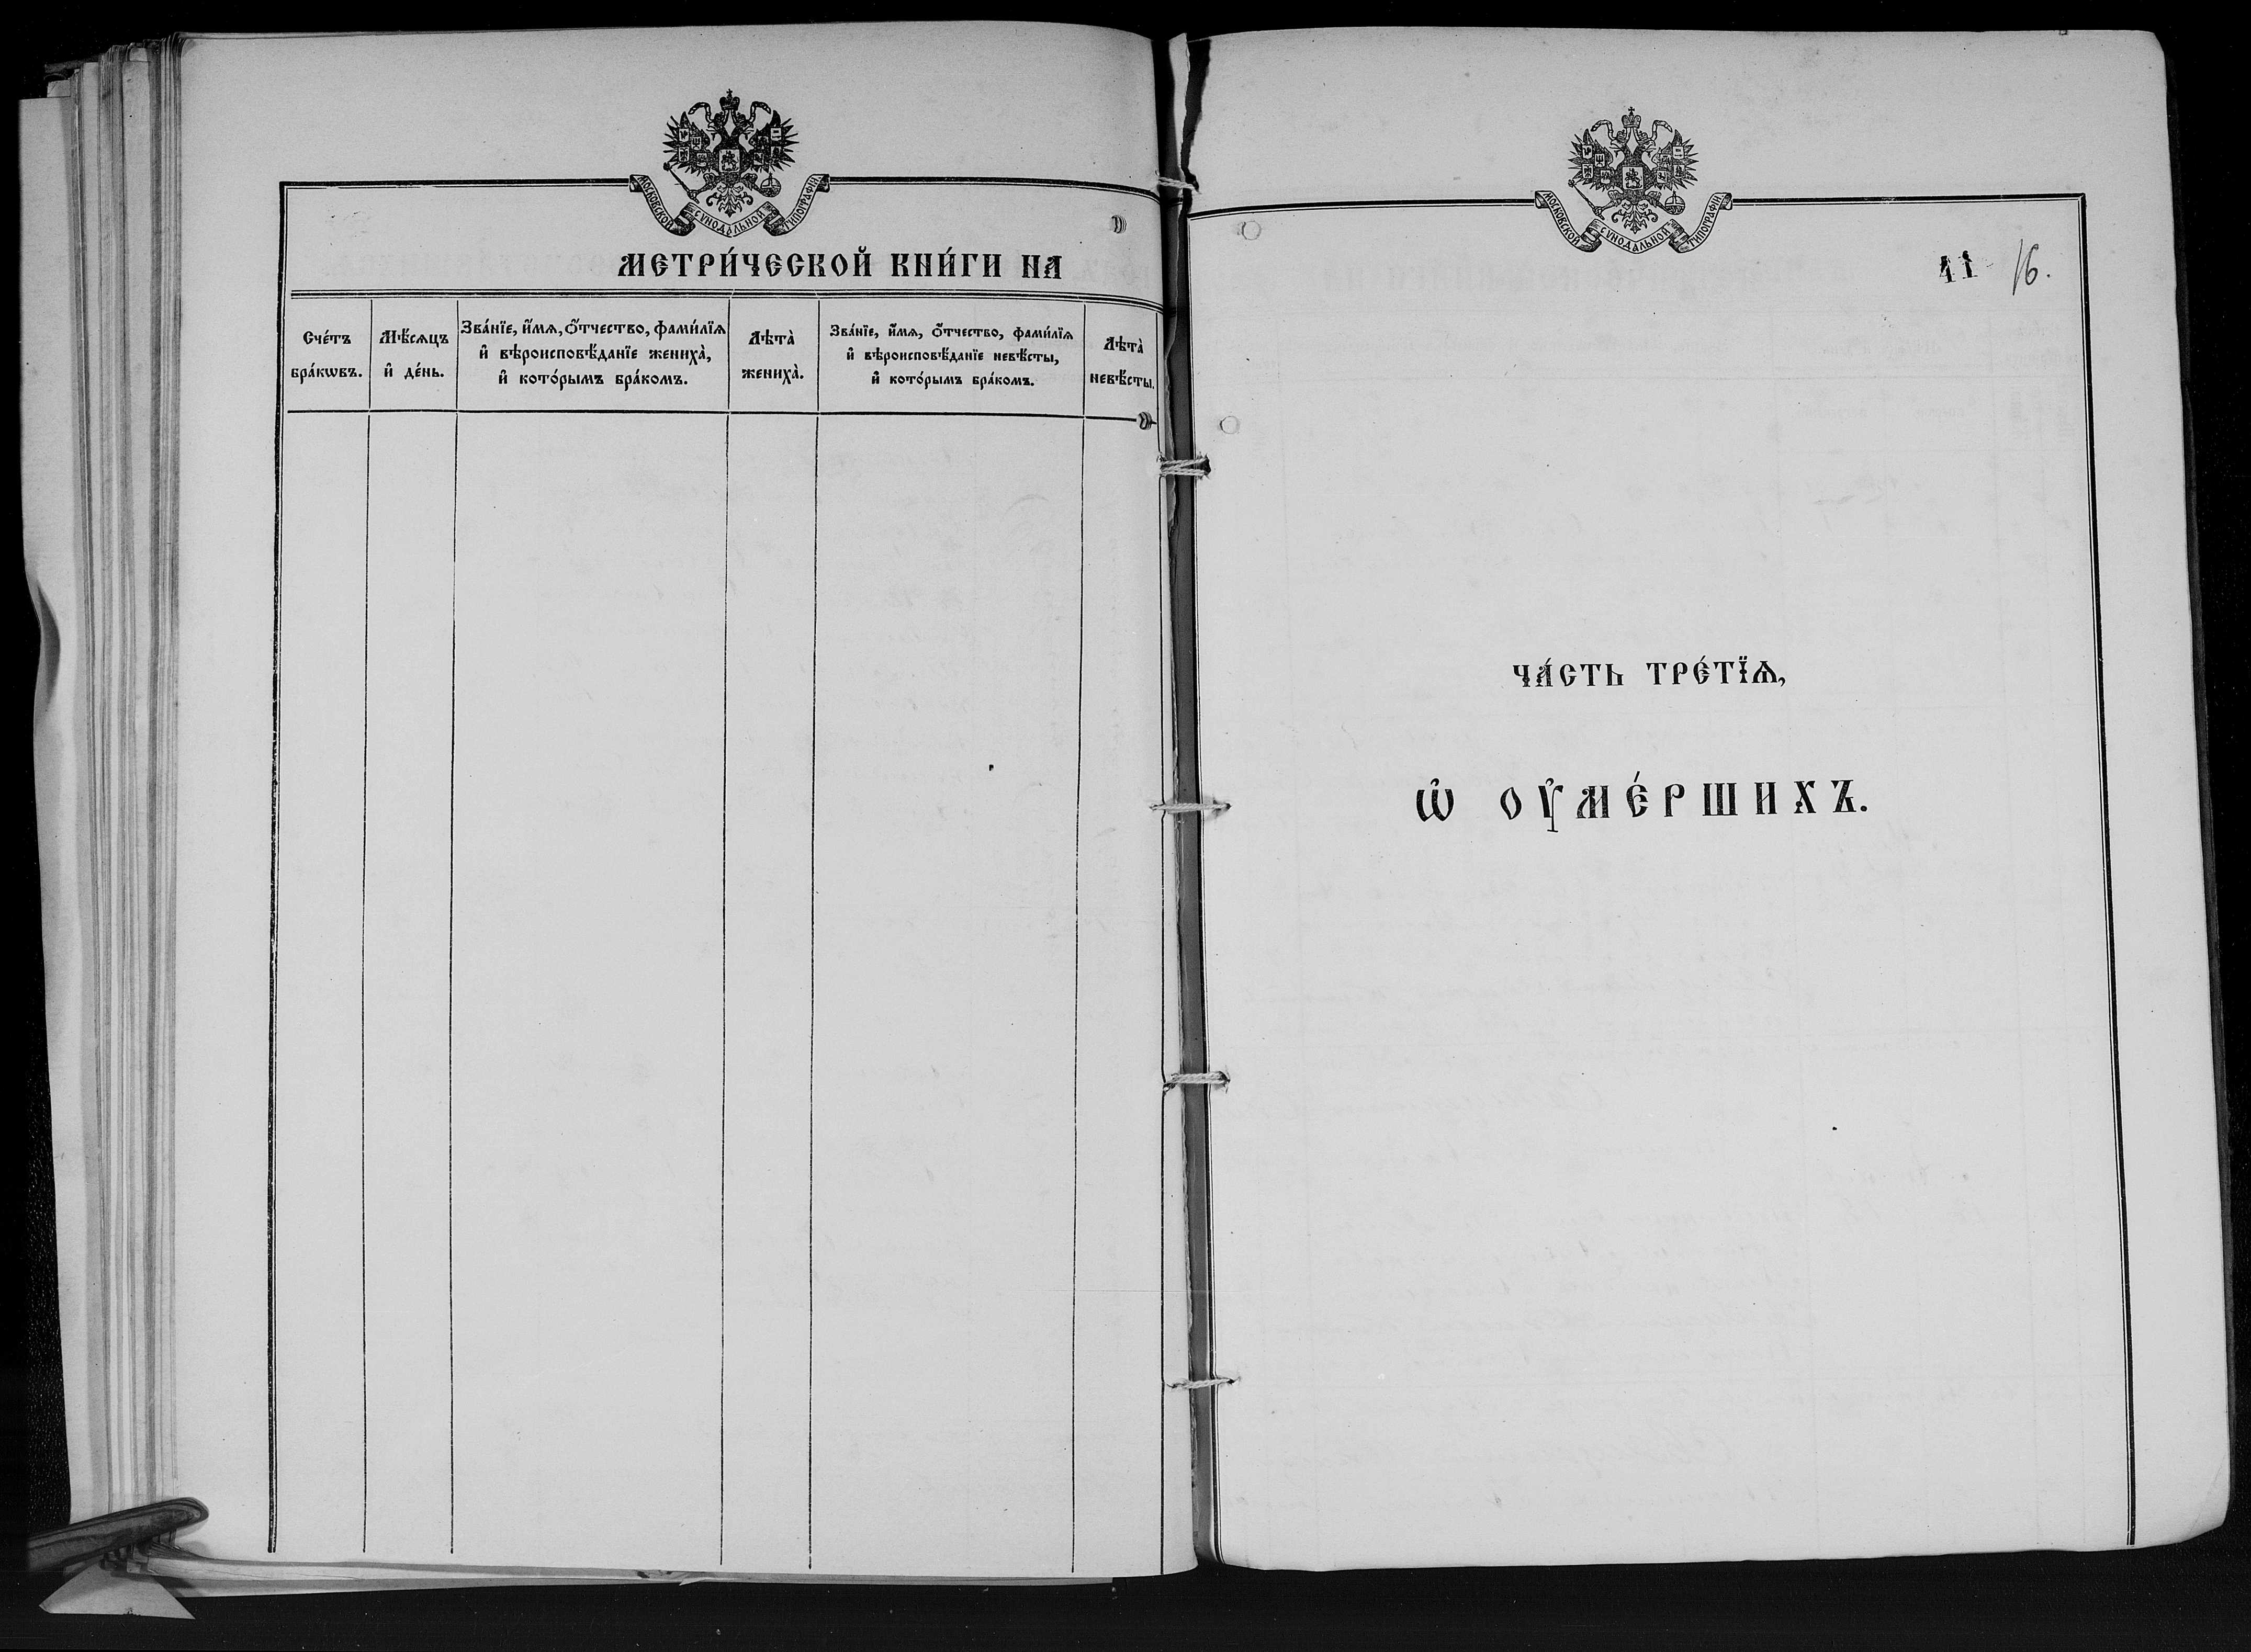 МОСКОВСКОЙ СѴНОДАЛЬНОЙ ТИПОГРАФІИ
МЕТРИ́ЧЕСКОЙ КНИ́ГИ НА
Сче́тъ
бра́кѡвъ.
Мѣ́сѧцъ
и҆ де́нь.
Зва́нїе, и҆́мѧ, ѻ҆́тчество, фами́лїѧ
и҆ вѣроисповѣ́данїе жениха̀,
и҆ кото́рымъ бра́комъ.
Лѣта̀
жениха̀.
Зва́нїе, и҆́мѧ, ѻ҆́тчество, фами́лїѧ
и҆ вѣроисповѣ́данїе невѣ́сты,
и҆ кото́рымъ бра́комъ.
Лѣта̀
невѣ́сты.
МОСКОВСКОЙ СѴНОДАЛЬНОЙ ТИПОГРАФІИ
11 16.
ЧА́СТЬ ТРЕ́ТЇѦ,
Ѡ҆ ОУ҆МЕ́РШИХЪ.